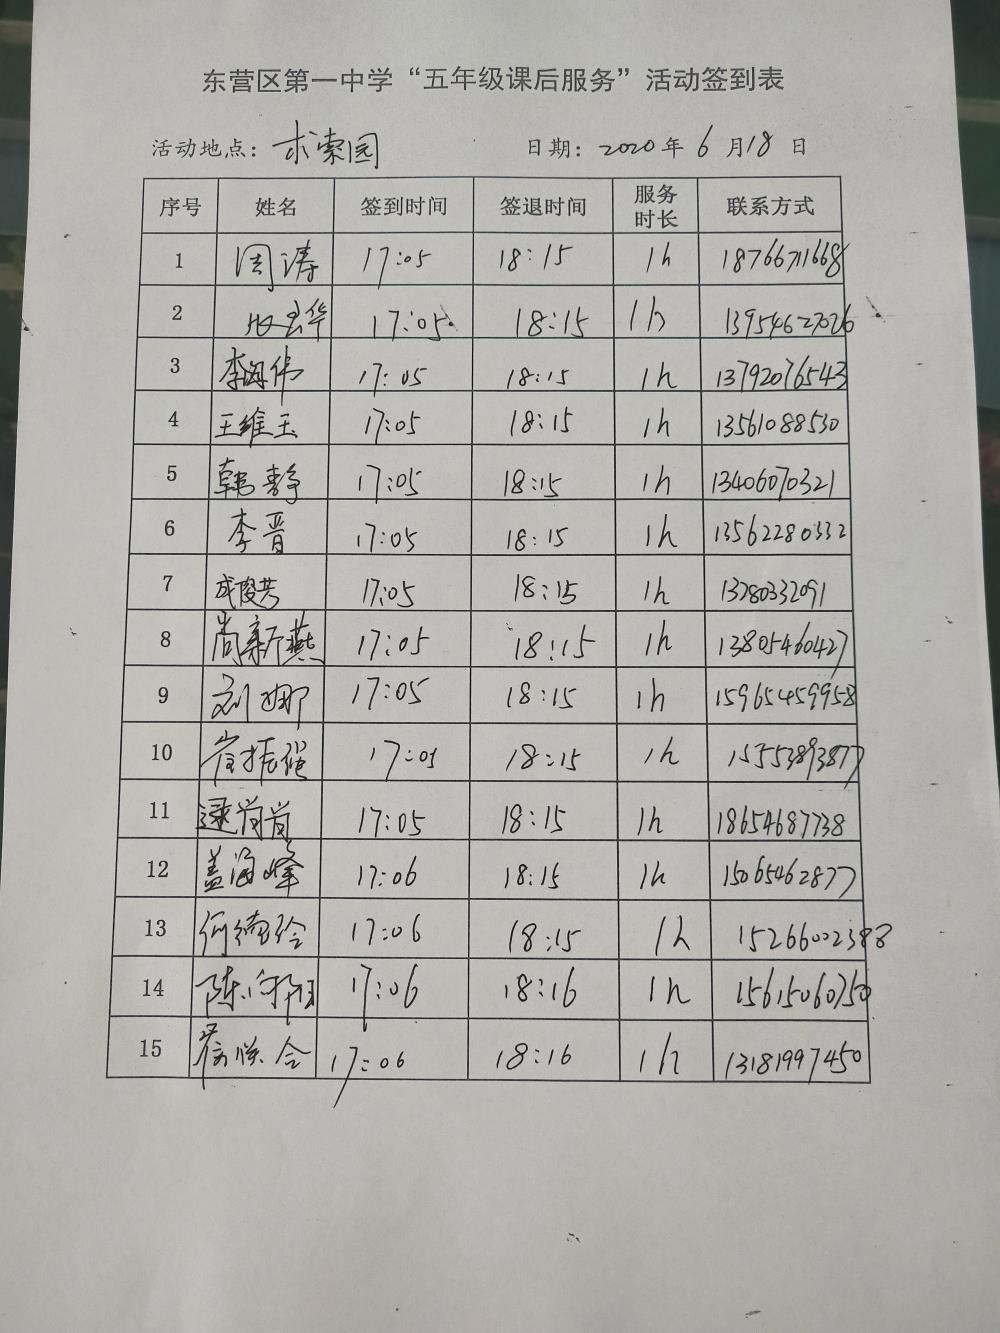 东营区第一中学“五年级课后服务”活动签到表
活动地点：求索园 日期：2020年6月18日
序号 姓名 签到时间 签退时间 服务时长 联系方式
1 周涛 17:05 18:15 1h 18766711668
2 17:05 18:15 1h 13954627026
3 李海伟 17:05 18:15 1h 13792076543
4 王维玉 17:05 18:15 1h 13561088530
5 韩静 17:05 18:15 1h 13406070321
6 李晋 17:05 18:15 1h 13562280332
7 成俊芳 17:05 18:15 1h 13280332091
8 尚新燕 17:05 18:15 1h 13805460427
9 刘娜 17:05 18:15 1h 15965459958
10 崔振强 17:05 18:15 1h 15553893877
11 逯岗岗 17:05 18:15 1h 18654687738
12 盖海峰 17:06 18:15 1h 15065462877
13 何德玲 17:06 18:15 1h 15266002388
14 17:06 18:16 1h 15615060750
15 17:06 18:16 1h 13181997450